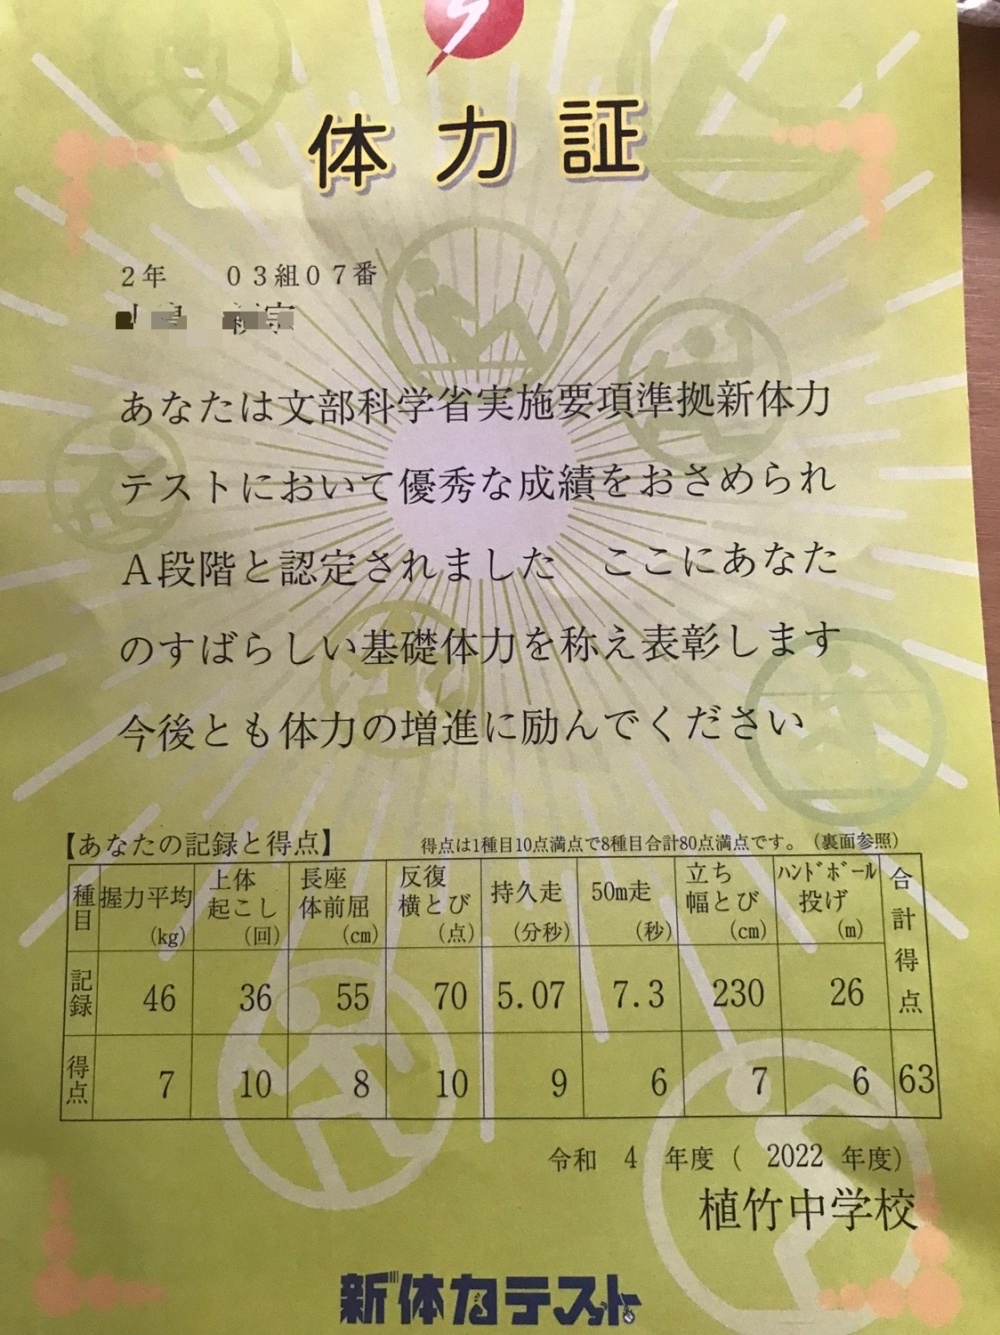 体力証
2年　０３組０７番
あなたは文部科学省実施要項準拠新体力
テストにおいて優秀な成績をおさめられ
Ａ段階と認定されました　ここにあなた
のすばらしい基礎体力を称え表彰します
今後とも体力の増進に励んでください
【あなたの記録と得点】　得点は1種目10点満点で8種目合計80点満点です。（裏面参照）
種目　握力平均(kg)　上体起こし(回)　長座体前屈(cm)　反復横とび(点)　持久走(分秒)　50m走(秒)　立ち幅とび(cm)　ﾊﾝﾄﾞﾎﾞｰﾙ投げ(m)　合計得点
記録　46　36　55　70　5.07　7.3　230　26
得点　7　10　8　10　9　6　7　6　63
令和　4　年度（　2022　年度）
植竹中学校
新体力テスト